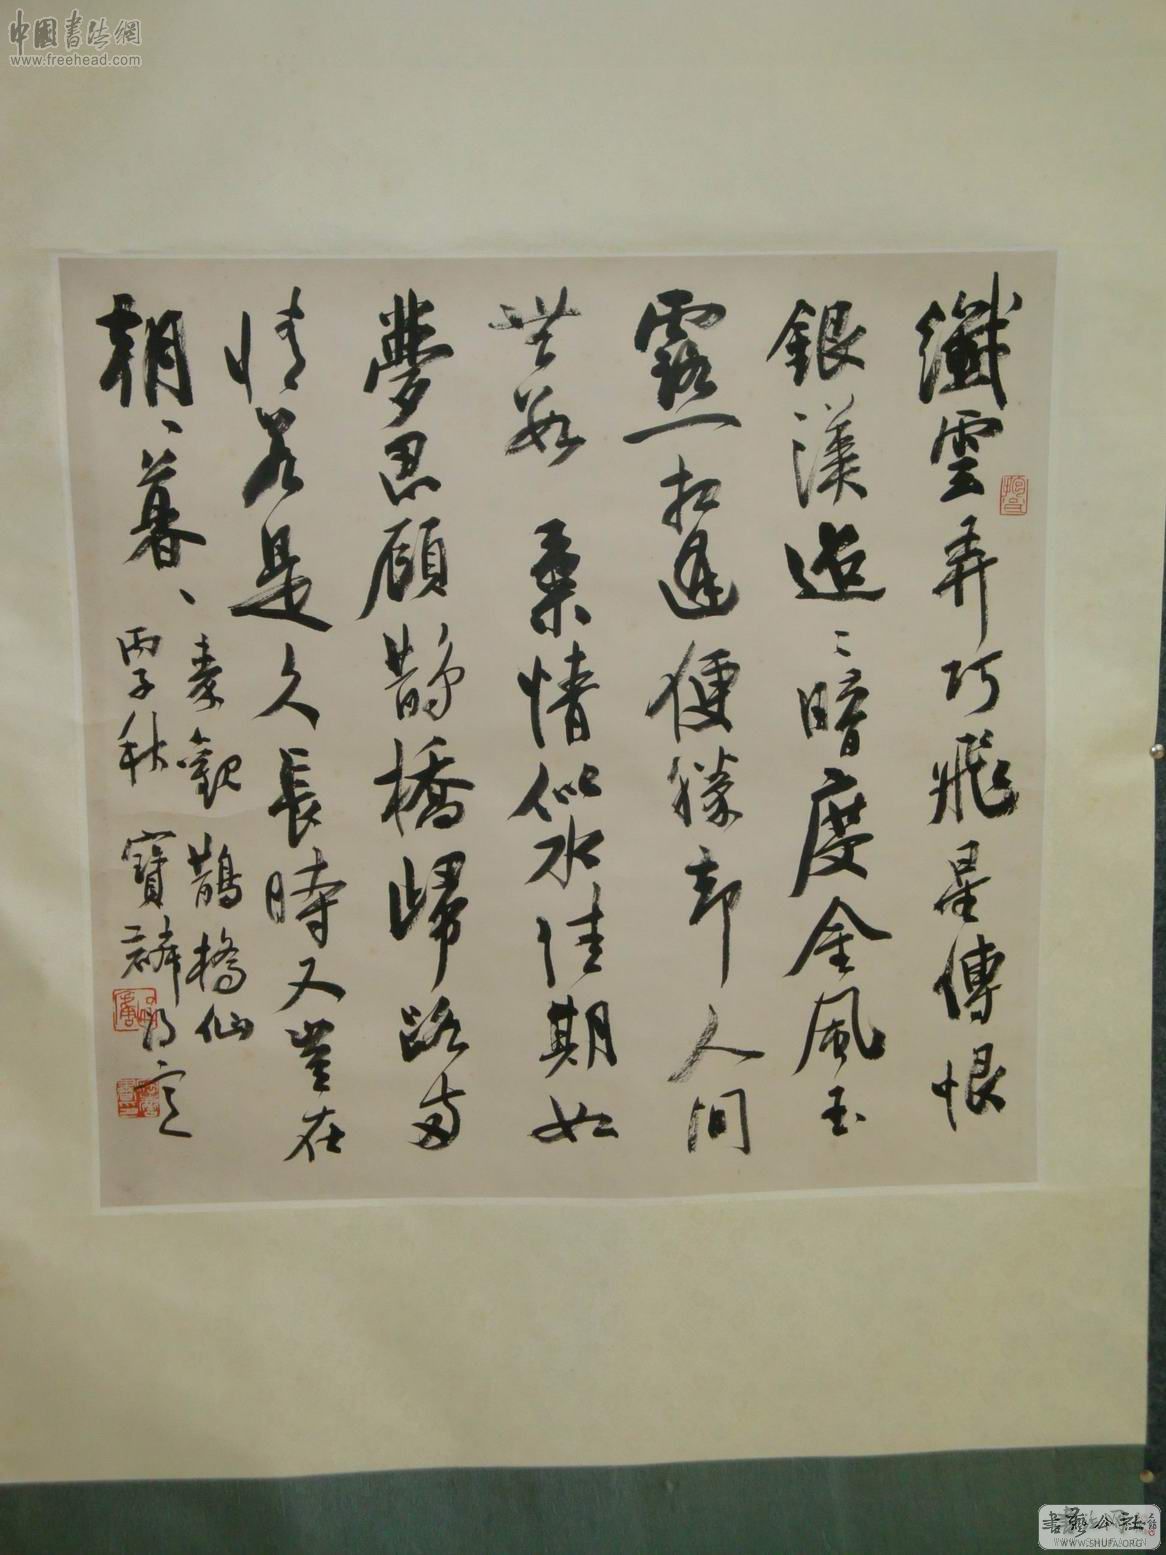 中國書法網
www.freehead.com
纖雲弄巧飛星傳恨
銀漢迢〻暗度金風玉
露一相逢便勝却人間
無數 柔情似水佳期如
夢忍顧鵲橋歸路兩
情若是久長時又豈在
朝〻暮〻
秦觀鵲橋仙
丙子秋 寶麟
書藝公社
WWW.SHUFA.ORG